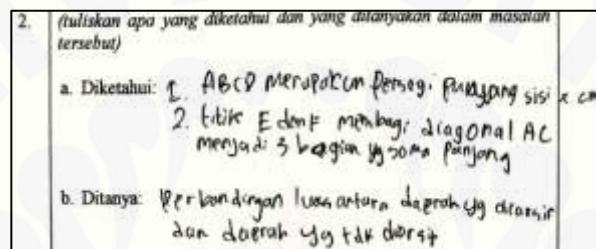 2. (tuliskan apa yang diketahui dan yang ditanyakan dalam masalah
tersebut)
a. Diketahui: 1. ABCD merupakan persegi panjang sisi x cm
2. titik E dan F membagi diagonal AC
menjadi 3 bagian yg sama panjang
b. Ditanya: Perbandingan luas antara daerah yg diarsir
dan daerah yg tdk diarsir